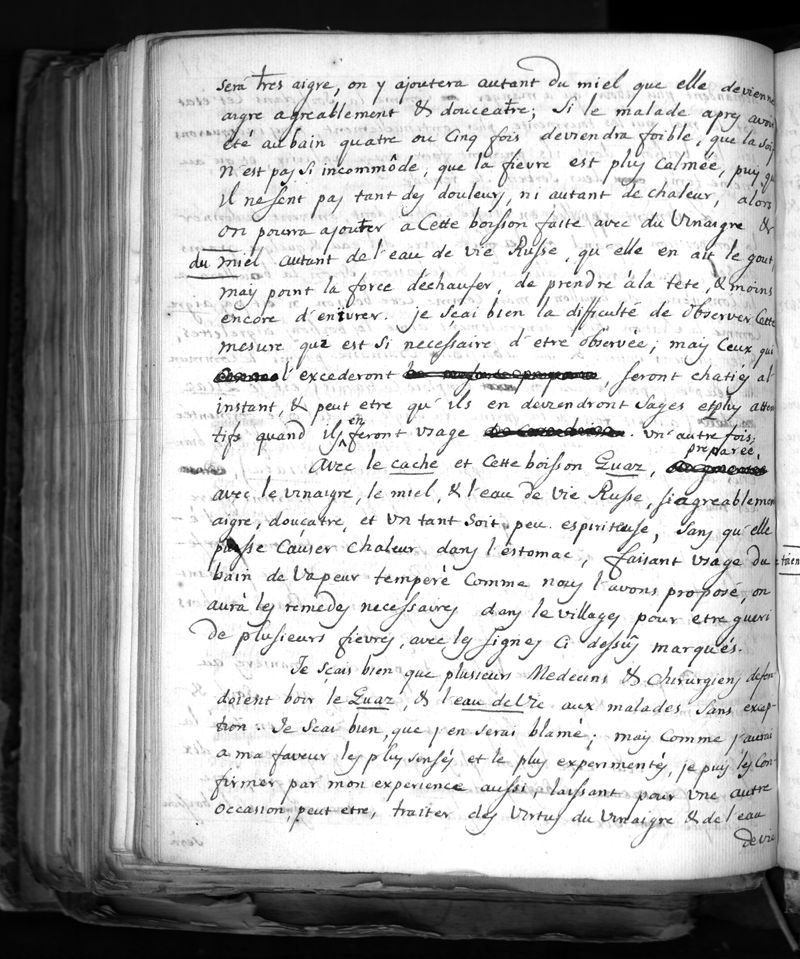 sera tres aigre, on y ajoutera autant du miel que elle devienne
aigre agreablement & douceatre; Si le malade apres avoir
été au bain quatre ou cinq fois deviendra foible, que la soif
n'est pas si incommôde, que la fievre est plus calmée, puis qu
il ne sent pas tant des douleurs, ni autant de chaleur, alors
on pourra ajouter a Cette boisson faite avec du Vinaigre &
du miel autant de l'eau de vie Russe, qu'elle en ait le gout,
mais point la force dechaufer, de prendre à la tête, & moins
encore d'enivrer. je sçai bien la difficulté de observer Cette
mesure que est si necessaire d'etre observée; mais Ceux qui
l'excederont, seront chaties al'
instant, & peut etre qu'ils en deviendront sages et plus atten
tifs quand ils en feront usage. un'autre fois;
Avec le cache et Cette boisson Quaz, preparée,
avec le vinaigre, le miel, & l'eau de vie Russe, si agreablemen
aigre, douçatre, et un tant soit peu espiriteuse, Sans qu'elle
puisse Causer Chaleur dans l'estomac, faisant usage du
bain de vapeur temperé comme nous l'avons proposé, on
aurà les remedes necessaires dans le villages pour etre gueri
de plusieurs fievres, avec les signes ci dessûs marqués.
Je scais bien que plusieurs Medecins & Chirurgiens defen
doient boir le Quaz, & l'eau de Vie aux malades sans excep-
tion. Je Scai bien, que j'en serai blamé; mais comme j'aurai
a ma faveur les plus sensés et le plus experimentés, je puis les Con-
firmer par mon experience aussi, laissant pour une autre
occasion, peut etre, traiter des Vertus du Vinaigre & de l'eau
de vie